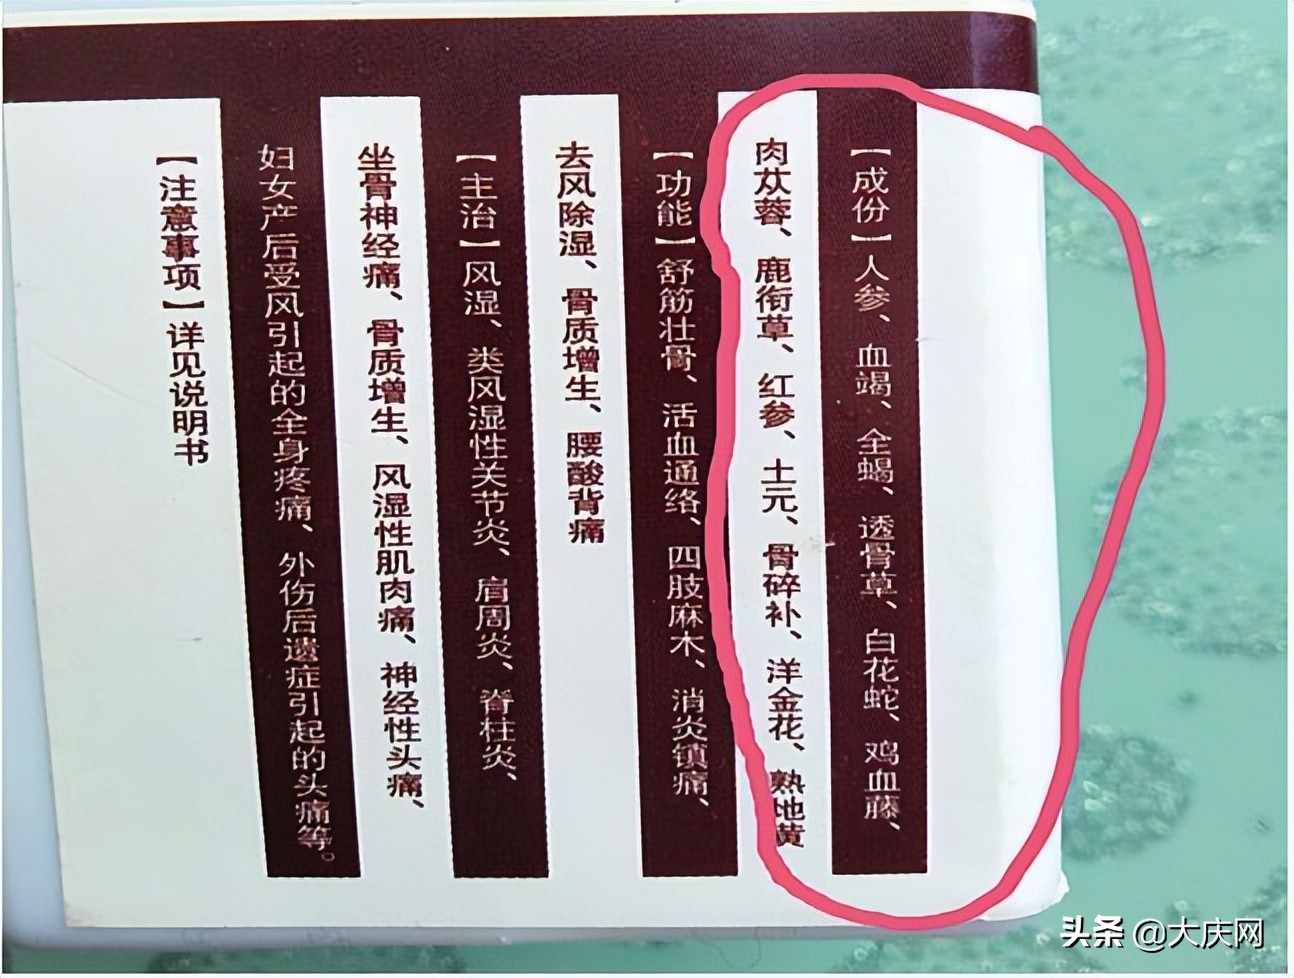 【成份】人参、血竭、全蝎、透骨草、白花蛇、鸡血藤、
肉苁蓉、鹿衔草、红参、土元、骨碎补、洋金花、熟地黄
【功能】舒筋壮骨、活血通络、四肢麻木、消炎镇痛、
去风除湿、骨质增生、腰酸背痛
【主治】风湿、类风湿性关节炎、肩周炎、脊柱炎、
坐骨神经痛、骨质增生、风湿性肌肉痛、神经性头痛、
妇女产后受风引起的全身疼痛、外伤后遗症引起的头痛等。
【注意事项】详见说明书
头条 @大庆网